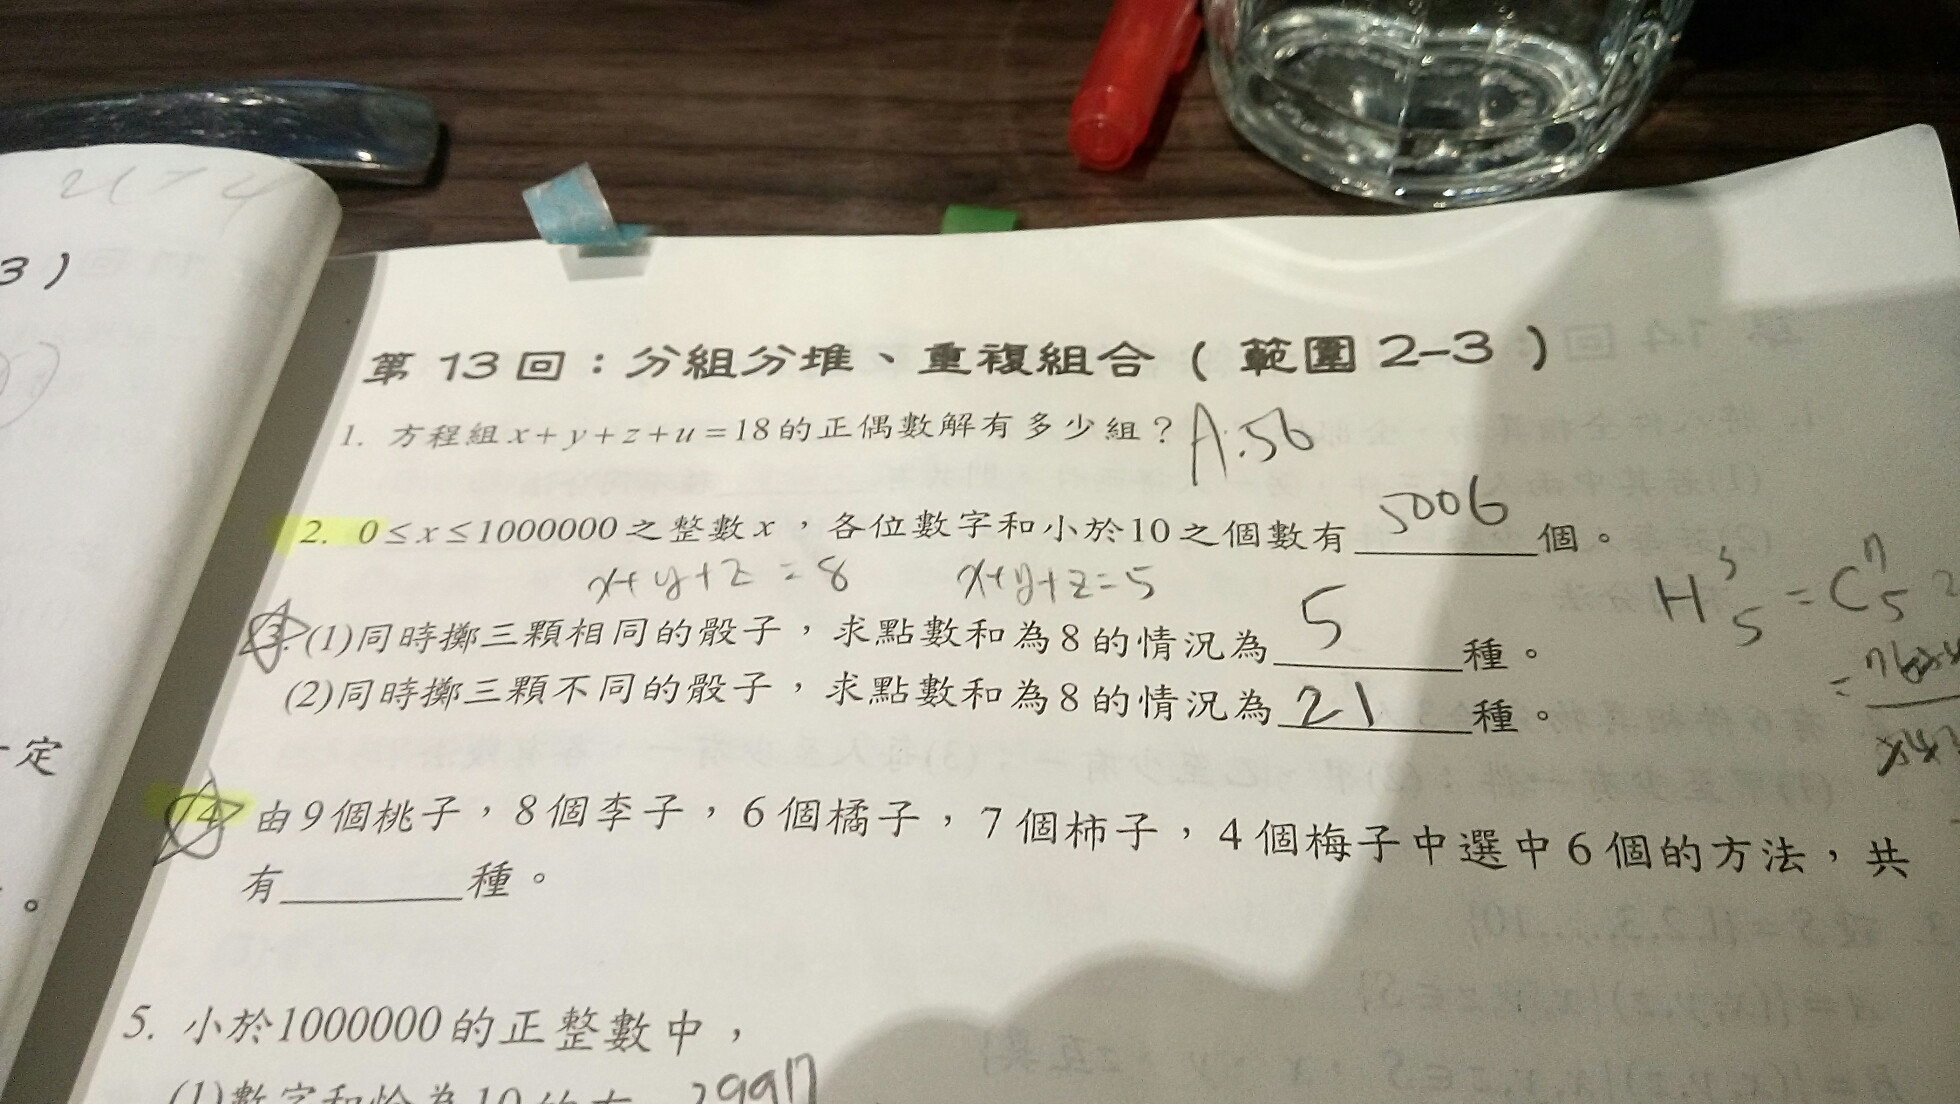 3)
第13回：分組分堆、重複組合（範圍2-3）
1. 方程組x+y+z+u=18的正偶數解有多少組？ A.56
2. 0≤x≤1000000之整數x，各位數字和小於10之個數有 5006 個。
x+y+z=8 x+y+z=5
H³₅=C⁷₅
3.(1)同時擲三顆相同的骰子，求點數和為8的情況為 5 種。
(2)同時擲三顆不同的骰子，求點數和為8的情況為 21 種。
定
4. 由9個桃子，8個李子，6個橘子，7個柿子，4個梅子中選中6個的方法，共
有______種。
。
5. 小於1000000的正整數中，
(1)數字和恰為10的有 2997